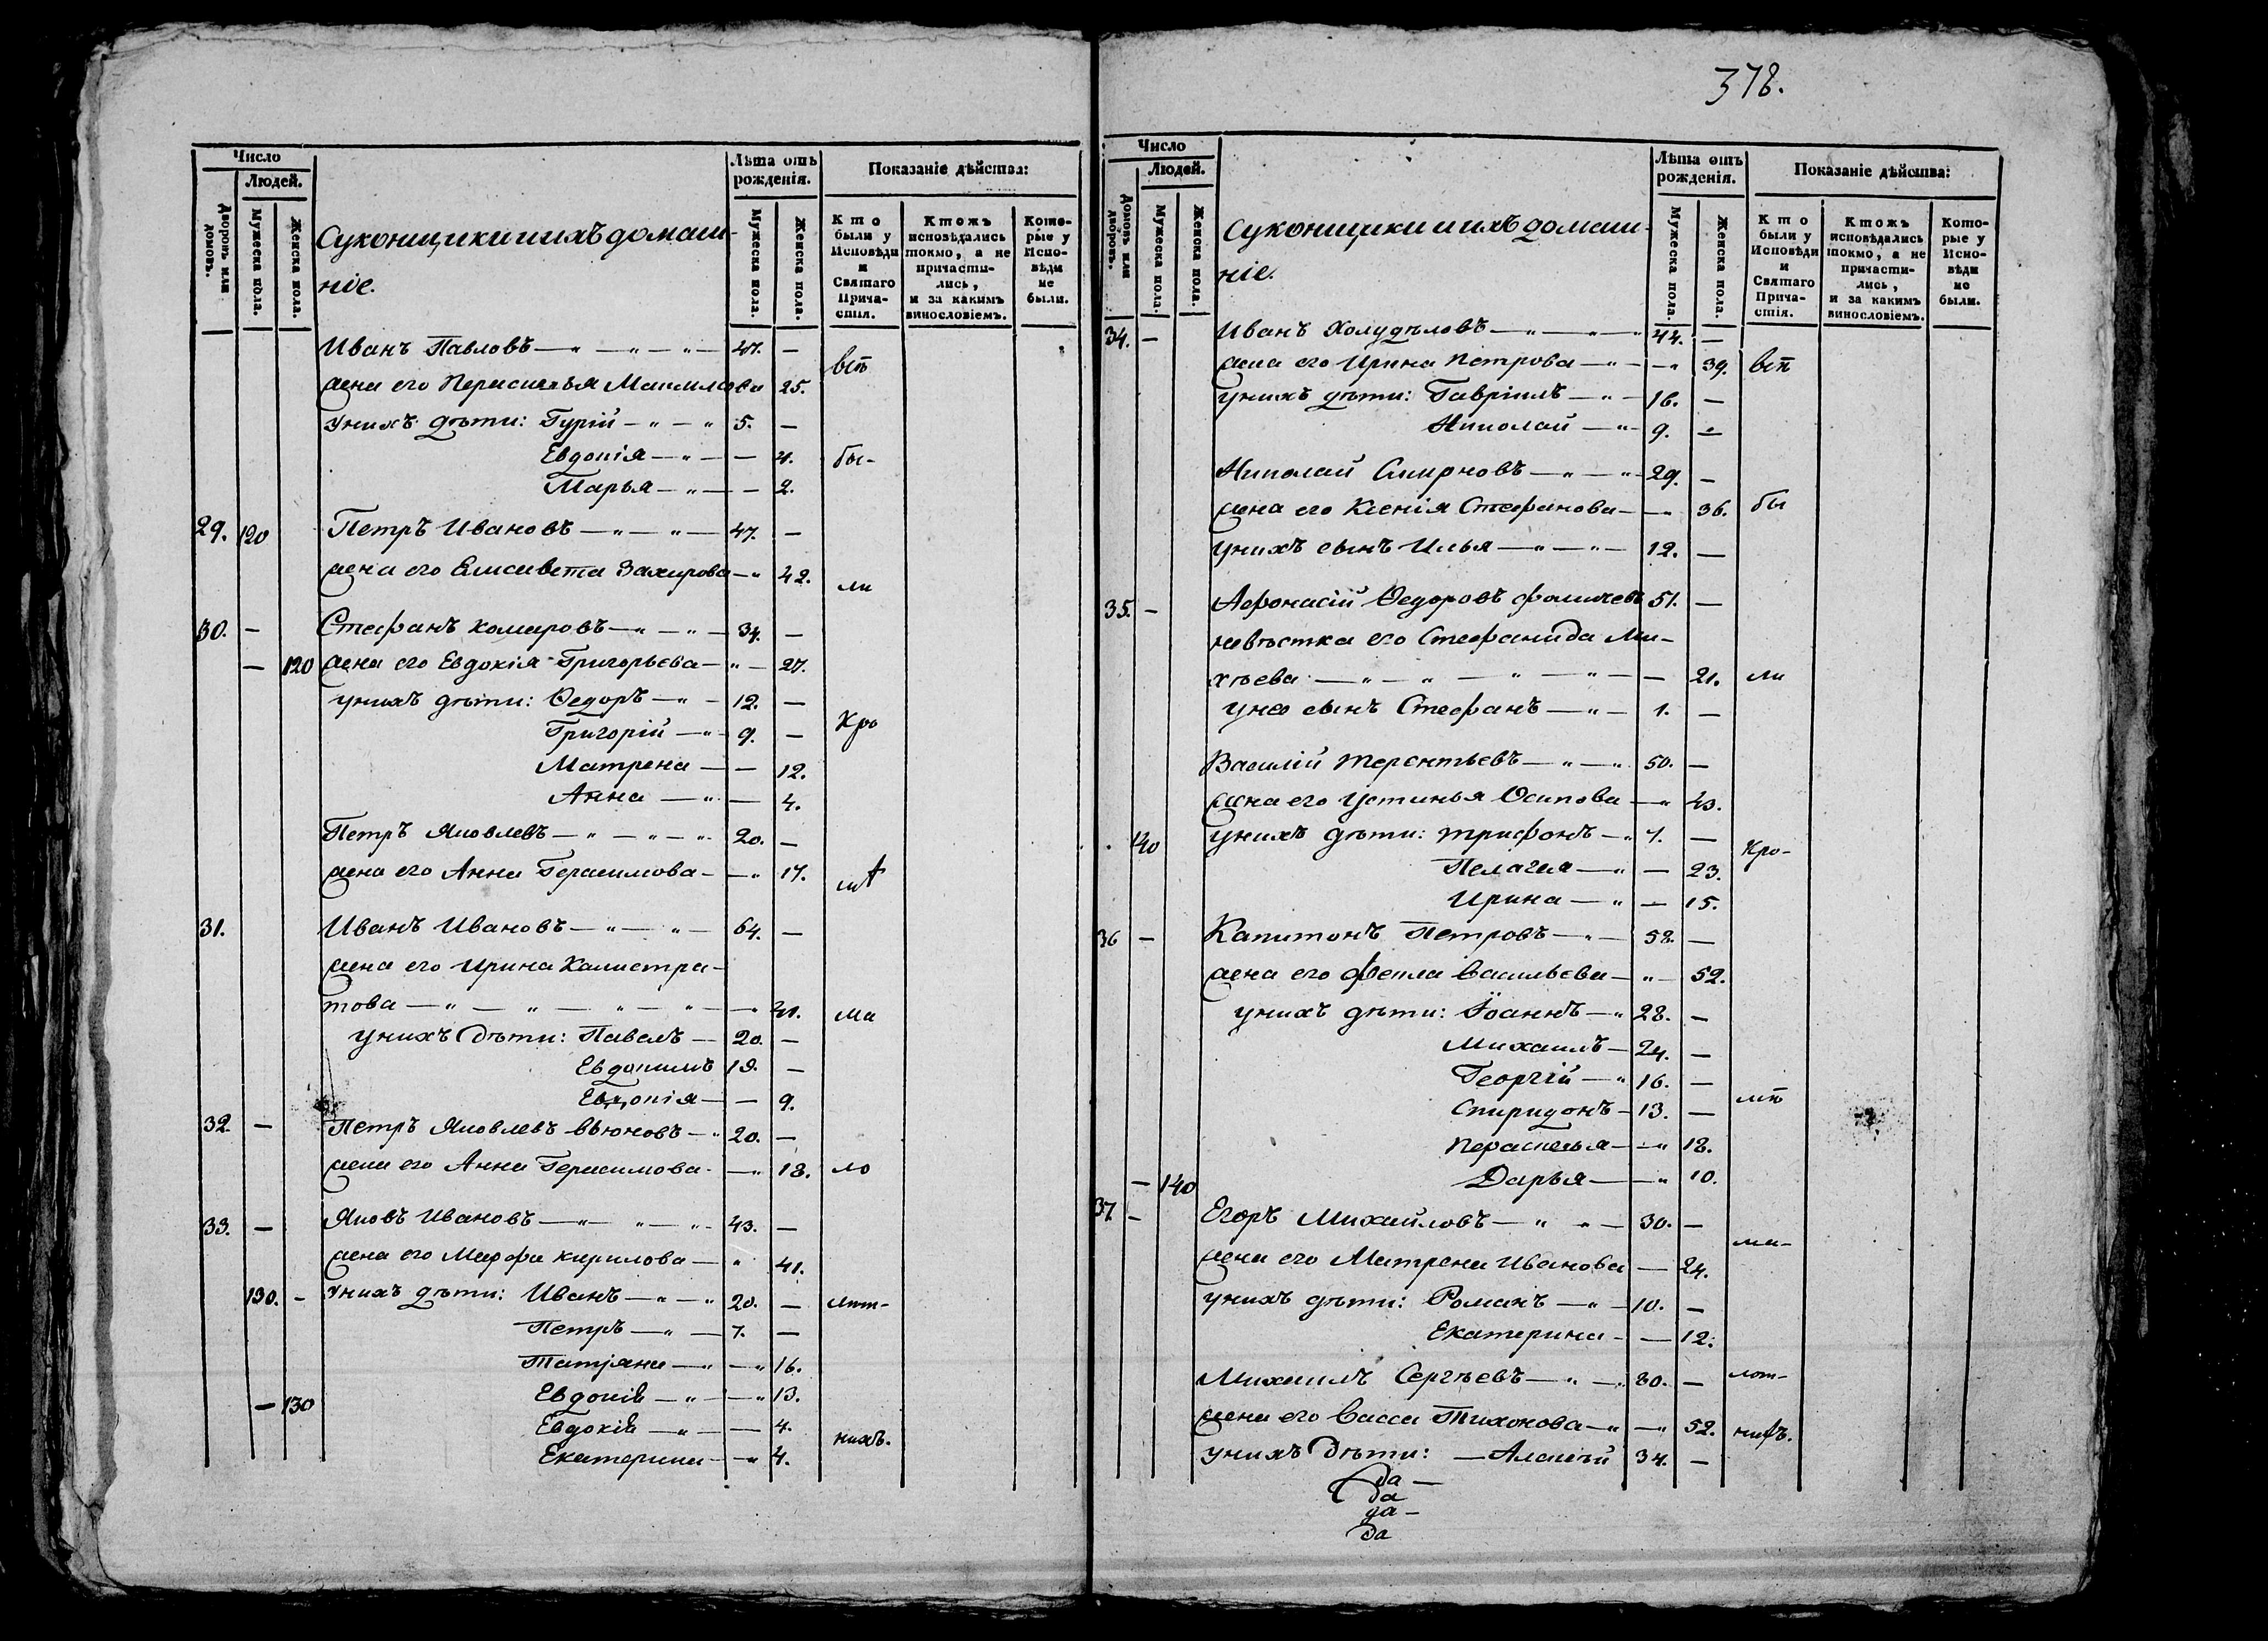 378.
Число
Людей.
Дворовъ или домовъ.
Мужеска пола.
Женска пола.
Суконщики и ихъ домаш-
ніе.
Лѣта отъ рожденія.
Мужеска пола.
Женска пола.
Показаніе дѣйства:
Кто были у Исповѣди и Святаго Прича-стія.
Ктожъ исповѣдались токмо, а не причасти-лись, и за какимъ винословіемъ.
Кото-рые у Испо-вѣди не были.
Иванъ Павловъ 47. —
жена его Параскевья 25. всѣ
у нихъ дѣти: Гурій 5. —
Евдокія — 4. бы-
Марья — 2.
29. 120 Петръ Ивановъ 47. —
жена его Елисавета Захарова — 42. ли
30. — Стефанъ Комаровъ 34. —
— 120 жена его Евдокія Григорьева — 27.
у нихъ дѣти: Ѳедоръ 12. —
Григорій 9. — Кро
Матрена — 12.
Анна — 4.
Петръ Яковлевъ 20. —
жена его Анна Герасимова — 17.
31. Иванъ Ивановъ 64. —
жена его Ирина Калистра-
това — 41. ма
у нихъ дѣти: Павелъ 20. —
Евдокимъ 19. —
Евдокія — 9.
32. — Петръ Яковлевъ Вьюновъ 20. —
жена его Анна Герасимова — 18. ло
33. — Яковъ Ивановъ 43. —
жена его Марфа Кирилова — 41.
130. — у нихъ дѣти: Иванъ 20. — лѣт-
Петръ 7. —
Татьяна — 16.
— 130 Евдокія — 13.
Евдокія — 4. нихъ.
Екатерина — 4.
Число
Людей.
Домовъ или дворовъ.
Мужеска пола.
Женска пола.
Суконщики и ихъ домаш-
ніе.
Лѣта отъ рожденія.
Мужеска пола.
Женска пола.
Показаніе дѣйства:
Кто были у Исповѣди и Святаго Прича-стія.
Ктожъ исповѣдались токмо, а не причасти-лись, и за какимъ винословіемъ.
Кото-рые у Испо-вѣди не были.
34. — Иванъ Холудѣловъ 44. —
жена его Ирина Петрова — 39. всѣ
у нихъ дѣти: Гавріилъ 16. —
Николай 9. —
Николай Смирновъ 29. —
жена его Ксенія Стефанова — 36. бы
у нихъ сынъ Илья 12. —
35. — Афонасій Ѳедоровъ 51. —
невѣстка его Стефанида Ми-
хѣева — 21. ли
у нео сынъ Стефанъ 1. —
Василій Терентьевъ 50. —
жена его Устинья Осипова — 43.
140 у нихъ дѣти: Трифонъ 7. — Кро-
Пелагея — 23.
Ирина — 15.
36 — Капитонъ Петровъ 58. —
жена его Фекла Васильева — 52.
у нихъ дѣти: Іоаннъ 28. —
Михаилъ 24. —
Георгій 16. —
Спиридонъ 13. —
Параскевья — 18.
— 140 Дарья — 10.
37. — Егоръ Михайловъ 30. —
ма-
жена его Матрена Иванова — 24.
у нихъ дѣти: Романъ 10. —
Екатерина — 12.
Михаилъ Сергѣевъ 80. — лѣт-
жена его Васса Тихонова — 52. нихъ.
у нихъ дѣти: — Алексѣй 34. —
да —
да
да —
да